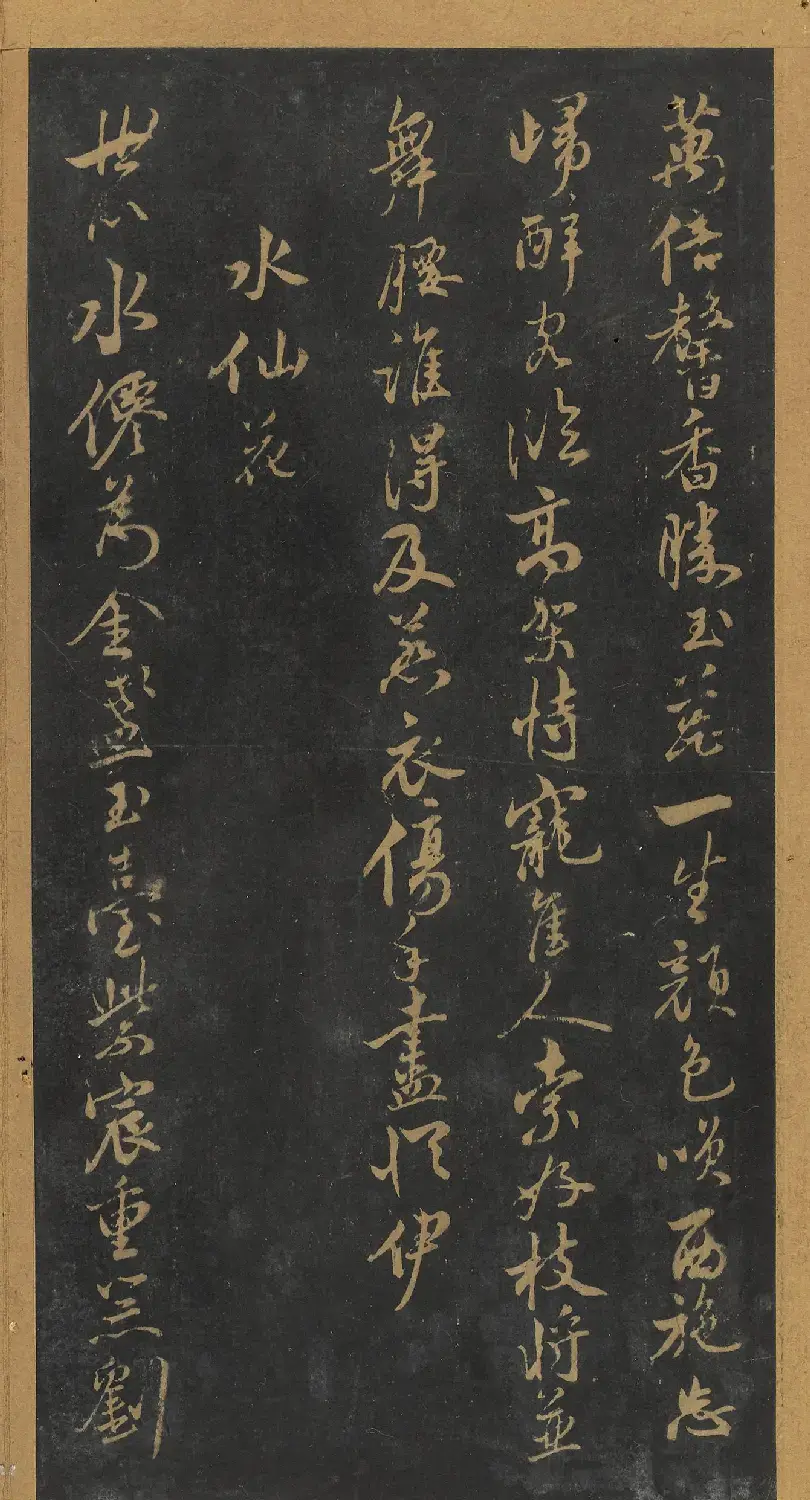 萬倍馨香勝玉蕊一生顏色咲西施忘
歸醉客臨高架恃寵佳人索好枝將並
舞腰誰得及惹衣傷手盡從伊
水仙花
世以水僊為金盞玉臺紫宸重劉